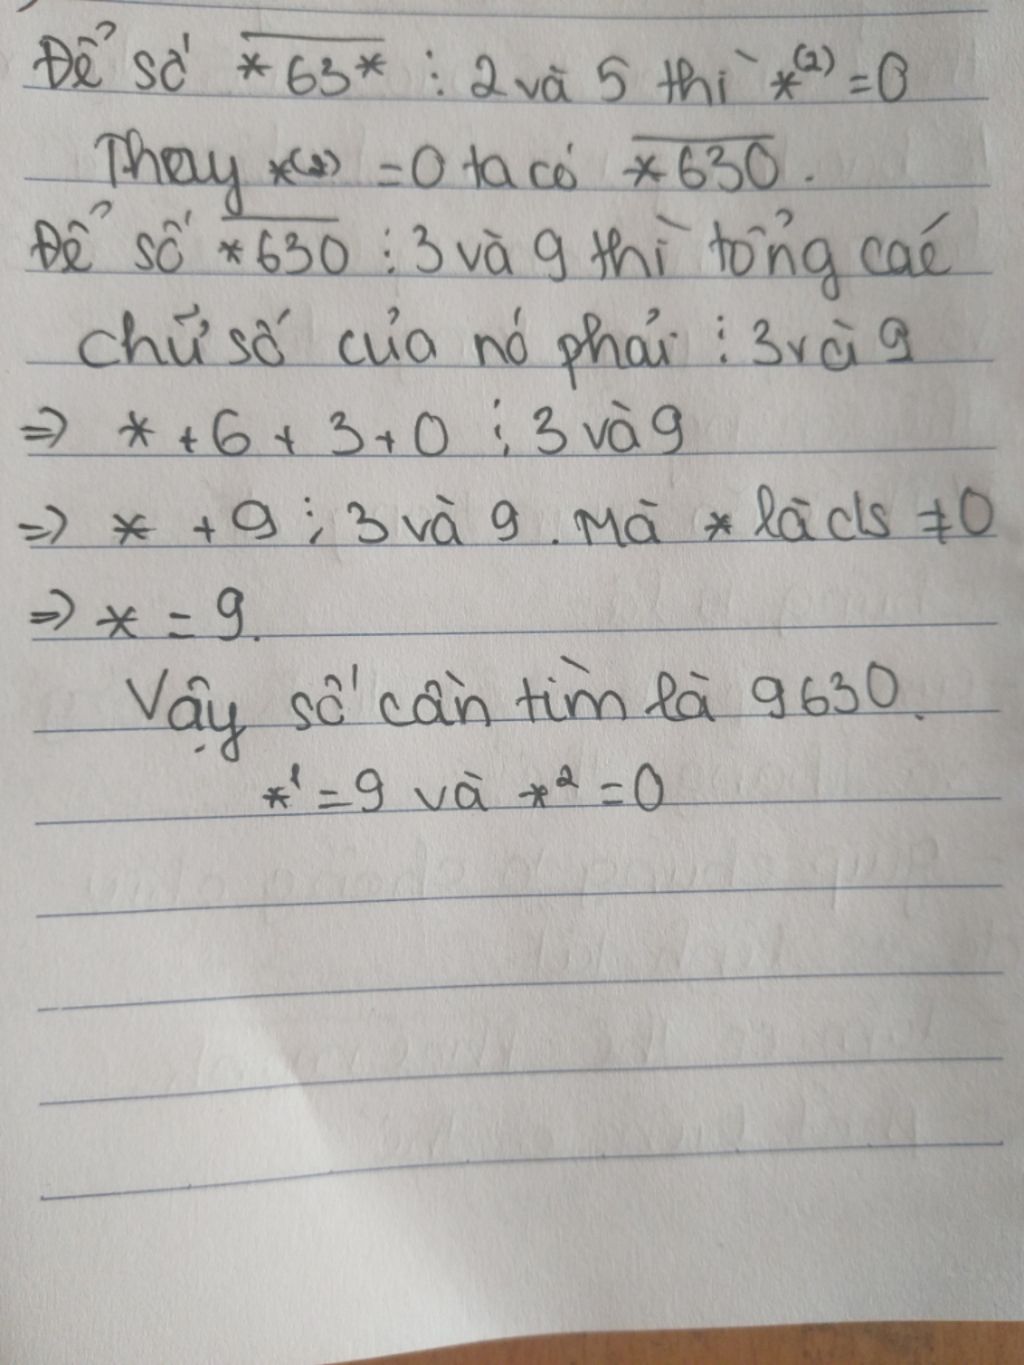 Để số *63* ⋮ 2 và 5 thì *(2) = 0
Thay *(2) = 0 ta có *630.
Để số *630 ⋮ 3 và 9 thì tổng các
chữ số của nó phải ⋮ 3 và 9
=> * + 6 + 3 + 0 ⋮ 3 và 9
=> * + 9 ⋮ 3 và 9. Mà * là cls ≠ 0
=> * = 9.
Vậy số cần tìm là 9630.
*¹ = 9 và *² = 0